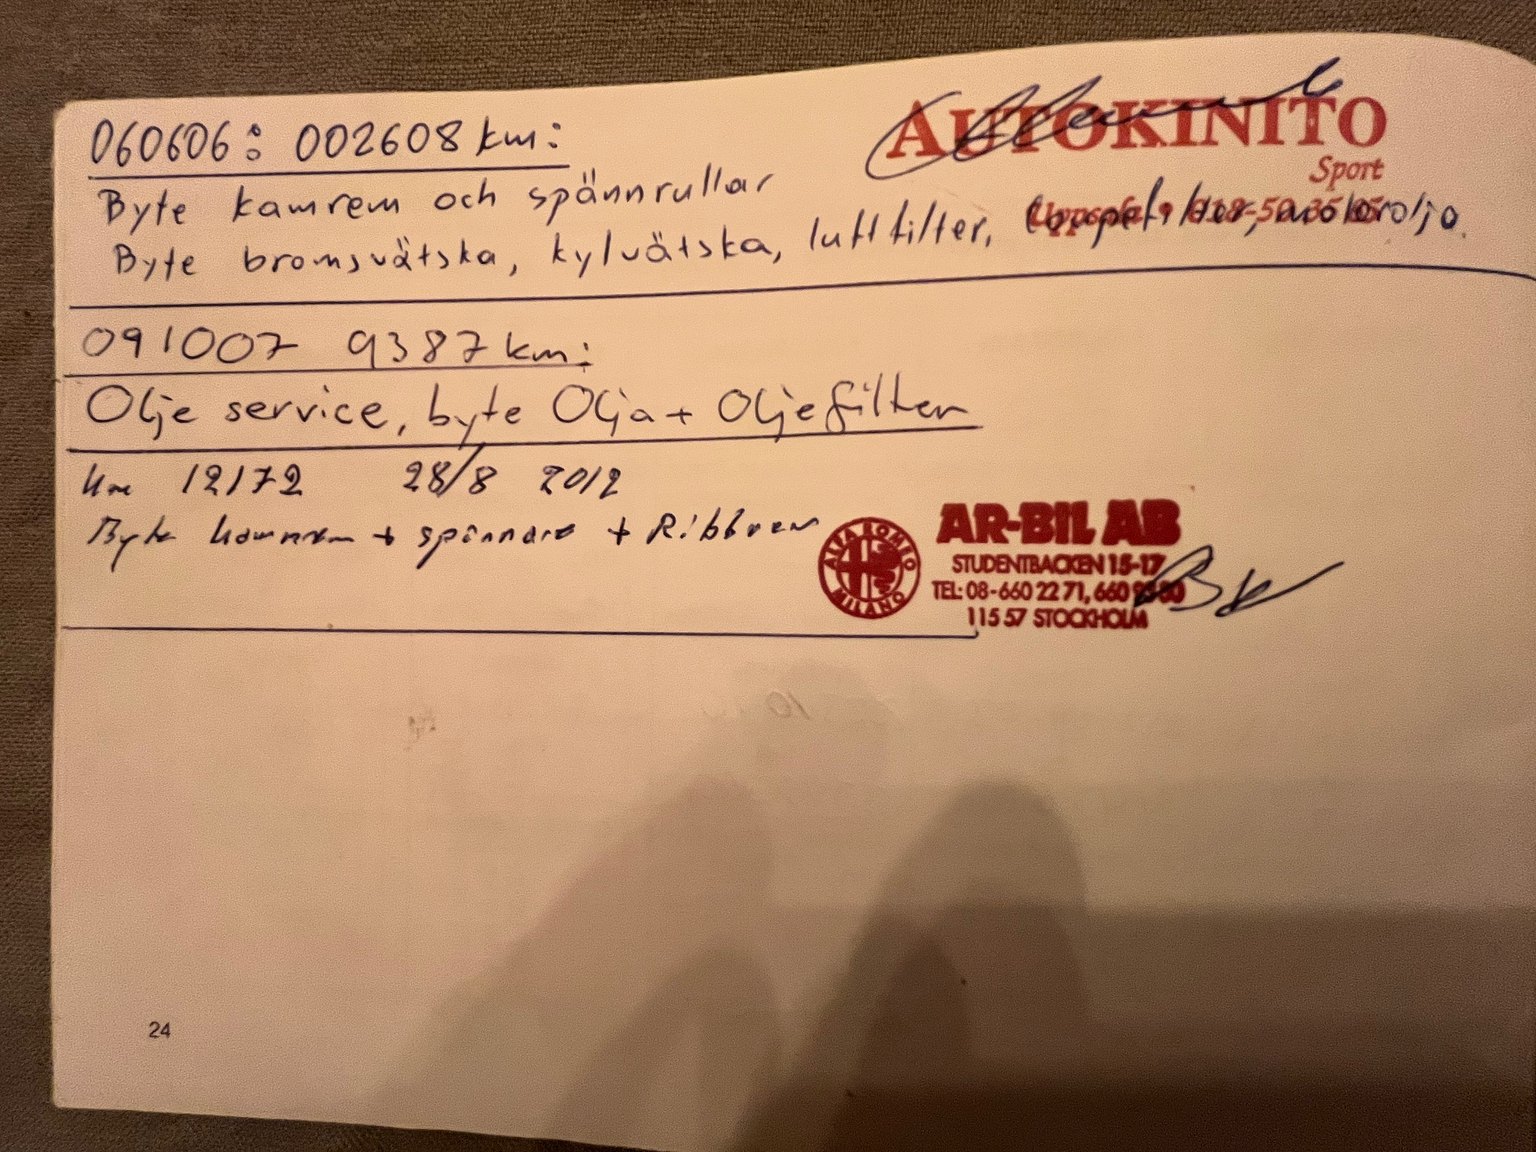 060606: 002608 km:
AUTOKINITO
Sport
Byte kamrem och spännrullar
Byte bromsvätska, kylvätska, luftfilter, coupefilter, motorolja.
091007 9387 km:
Olje service, byte Olja + Oljefilter
km 12172 28/8 2012
Byte kamrem + spännare + Ribbrem
ALFA ROMEO
MILANO
AR-BIL AB
STUDENTBACKEN 15-17
TEL: 08-660 22 71, 660
115 57 STOCKHOLM
24